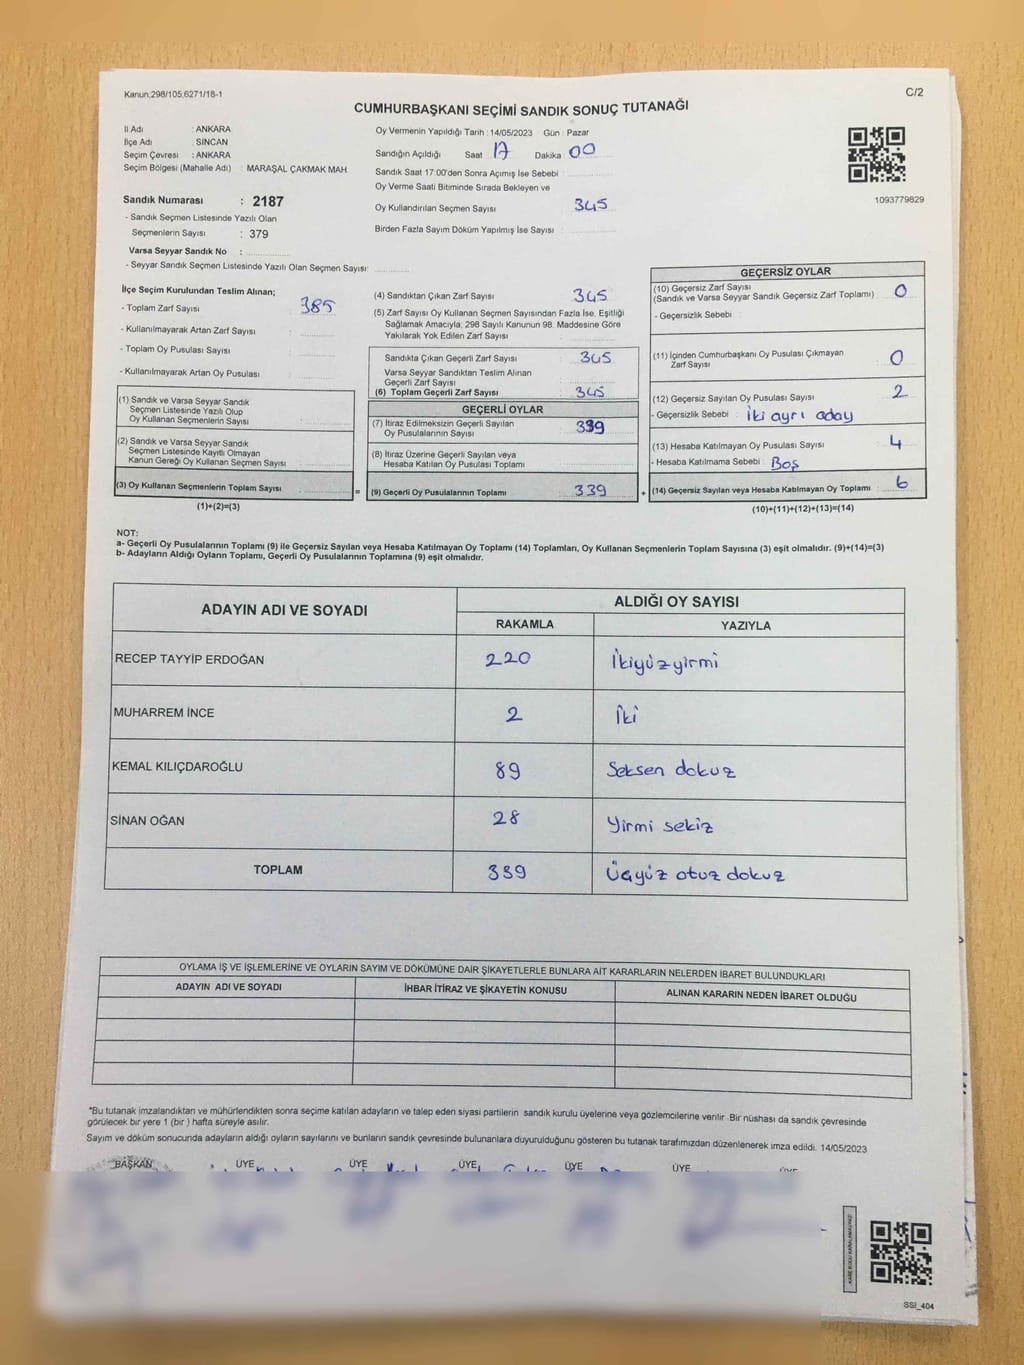 Kanun,298/105,6271/18-1
C/2
CUMHURBAŞKANI SEÇİMİ SANDIK SONUÇ TUTANAĞI
İl Adı : ANKARA
İlçe Adı : SİNCAN
Seçim Çevresi : ANKARA
Seçim Bölgesi (Mahalle Adı) : MARAŞAL ÇAKMAK MAH
Sandık Numarası : 2187
- Sandık Seçmen Listesinde Yazılı Olan
Seçmenlerin Sayısı : 379
Varsa Seyyar Sandık No :
- Seyyar Sandık Seçmen Listesinde Yazılı Olan Seçmen Sayısı:
Oy Vermenin Yapıldığı Tarih : 14/05/2023 Gün : Pazar
Sandığın Açıldığı Saat 17 Dakika : 00
Sandık Saat 17:00'den Sonra Açımış İse Sebebi :
Oy Verme Saati Bitiminde Sırada Bekleyen ve
Oy Kullandırılan Seçmen Sayısı : 345
Birden Fazla Sayım Döküm Yapılmış İse Sayısı :
1093779829
İlçe Seçim Kurulundan Teslim Alınan;
- Toplam Zarf Sayısı : 385
- Kullanılmayarak Artan Zarf Sayısı :
- Toplam Oy Pusulası Sayısı :
- Kullanılmayarak Artan Oy Pusulası :
(1) Sandık ve Varsa Seyyar Sandık
Seçmen Listesinde Yazılı Olup
Oy Kullanan Seçmenlerin Sayısı :
(2) Sandık ve Varsa Seyyar Sandık
Seçmen Listesinde Kayıtlı Olmayan
Kanun Gereği Oy Kullanan Seçmen Sayısı :
(3) Oy Kullanan Seçmenlerin Toplam Sayısı :
(1)+(2)=(3)
=
(4) Sandıktan Çıkan Zarf Sayısı : 345
(5) Zarf Sayısı Oy Kullanan Seçmen Sayısından Fazla İse, Eşitliği
Sağlamak Amacıyla, 298 Sayılı Kanunun 98. Maddesine Göre
Yakılarak Yok Edilen Zarf Sayısı :
Sandıkta Çıkan Geçerli Zarf Sayısı : 345
Varsa Seyyar Sandıktan Teslim Alınan
Geçerli Zarf Sayısı :
(6) Toplam Geçerli Zarf Sayısı : 345
GEÇERLİ OYLAR
(7) İtiraz Edilmeksizin Geçerli Sayılan
Oy Pusulalarının Sayısı : 339
(8) İtiraz Üzerine Geçerli Sayılan veya
Hesaba Katılan Oy Pusulası Toplamı :
(9) Geçerli Oy Pusulalarının Toplamı : 339
+
GEÇERSİZ OYLAR
(10) Geçersiz Zarf Sayısı
(Sandık ve Varsa Seyyar Sandık Geçersiz Zarf Toplamı) : 0
- Geçersizlik Sebebi :
(11) İçinden Cumhurbaşkanı Oy Pusulası Çıkmayan
Zarf Sayısı : 0
(12) Geçersiz Sayılan Oy Pusulası Sayısı : 2
- Geçersizlik Sebebi : İki ayrı aday
(13) Hesaba Katılmayan Oy Pusulası Sayısı : 4
- Hesaba Katılmama Sebebi : Boş
(14) Geçersiz Sayılan veya Hesaba Katılmayan Oy Toplamı : 6
(10)+(11)+(12)+(13)=(14)
NOT:
a- Geçerli Oy Pusulalarının Toplamı (9) ile Geçersiz Sayılan veya Hesaba Katılmayan Oy Toplamı (14) Toplamları, Oy Kullanan Seçmenlerin Toplam Sayısına (3) eşit olmalıdır. (9)+(14)=(3)
b- Adayların Aldığı Oyların Toplamı, Geçerli Oy Pusulalarının Toplamına (9) eşit olmalıdır.
ADAYIN ADI VE SOYADI
ALDIĞI OY SAYISI
RAKAMLA YAZIYLA
RECEP TAYYİP ERDOĞAN 220 İkiyüzyirmi
MUHARREM İNCE 2 İki
KEMAL KILIÇDAROĞLU 89 Seksen dokuz
SİNAN OĞAN 28 Yirmi sekiz
TOPLAM 339 Üçyüz otuz dokuz
OYLAMA İŞ VE İŞLEMLERİNE VE OYLARIN SAYIM VE DÖKÜMÜNE DAİR ŞİKAYETLERLE BUNLARA AİT KARARLARIN NELERDEN İBARET BULUNDUKLARI
ADAYIN ADI VE SOYADI İHBAR İTİRAZ VE ŞİKAYETİN KONUSU ALINAN KARARIN NEDEN İBARET OLDUĞU
*Bu tutanak imzalandıktan ve mühürlendikten sonra seçime katılan adayların ve talep eden siyasi partilerin sandık kurulu üyelerine veya gözlemcilerine verilir .Bir nüshası da sandık çevresinde
görülecek bir yere 1 (bir ) hafta süreyle asılır.
Sayım ve döküm sonucunda adayların aldığı oyların sayılarını ve bunların sandık çevresinde bulunanlara duyurulduğunu gösteren bu tutanak tarafımızdan düzenlenerek imza edildi. 14/05/2023
BAŞKAN ÜYE ÜYE ÜYE ÜYE ÜYE ÜYE
SSİ_404